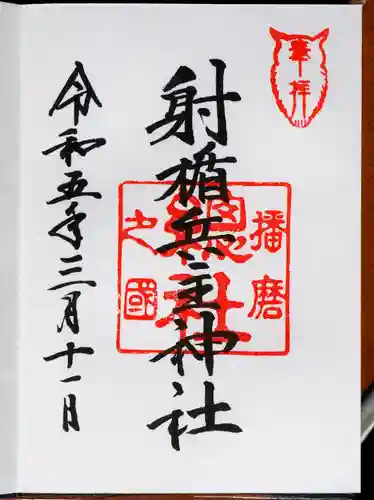 奉拝
播磨
総社
之國
射楯兵主神社
令和五年三月十一日